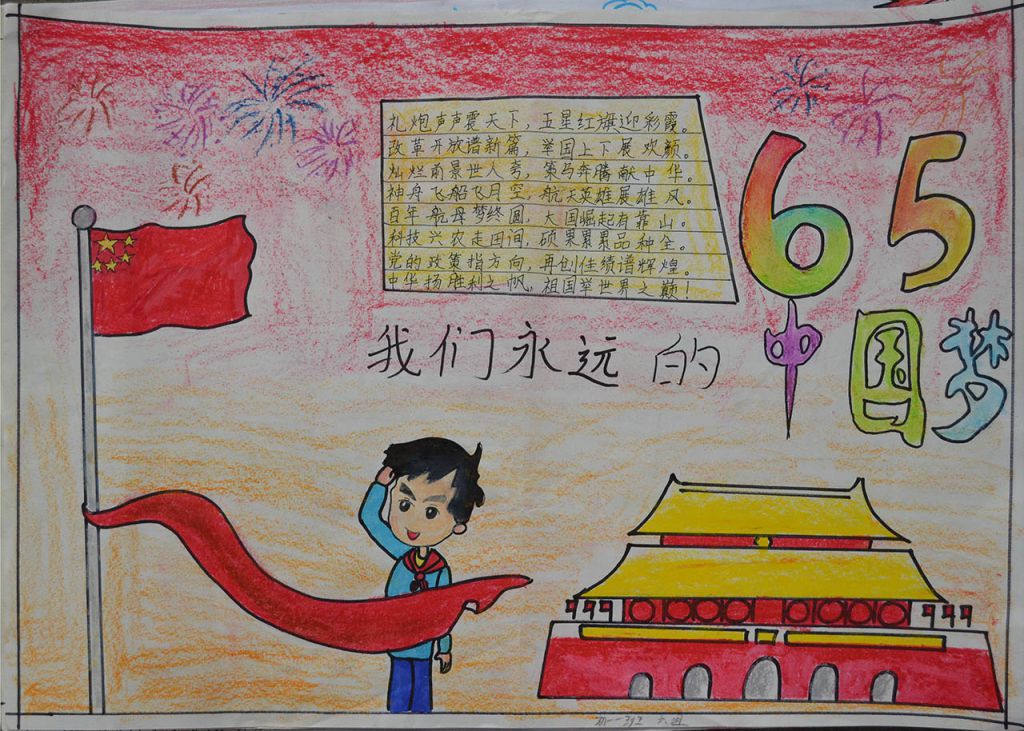 礼炮声声震天下，五星红旗迎彩霞。
改革开放谱新篇，举国上下展欢颜。
灿烂前景世人夸，策马奔腾献中华。
神舟飞船飞月空，航天英雄展雄风。
百年航母梦终圆，大国崛起有靠山。
科技兴农走田间，硕果累累品种全。
党的政策指方向，再创佳绩谱辉煌。
中华扬胜利之帆，祖国举世界之巅！
65
我们永远的
中国梦